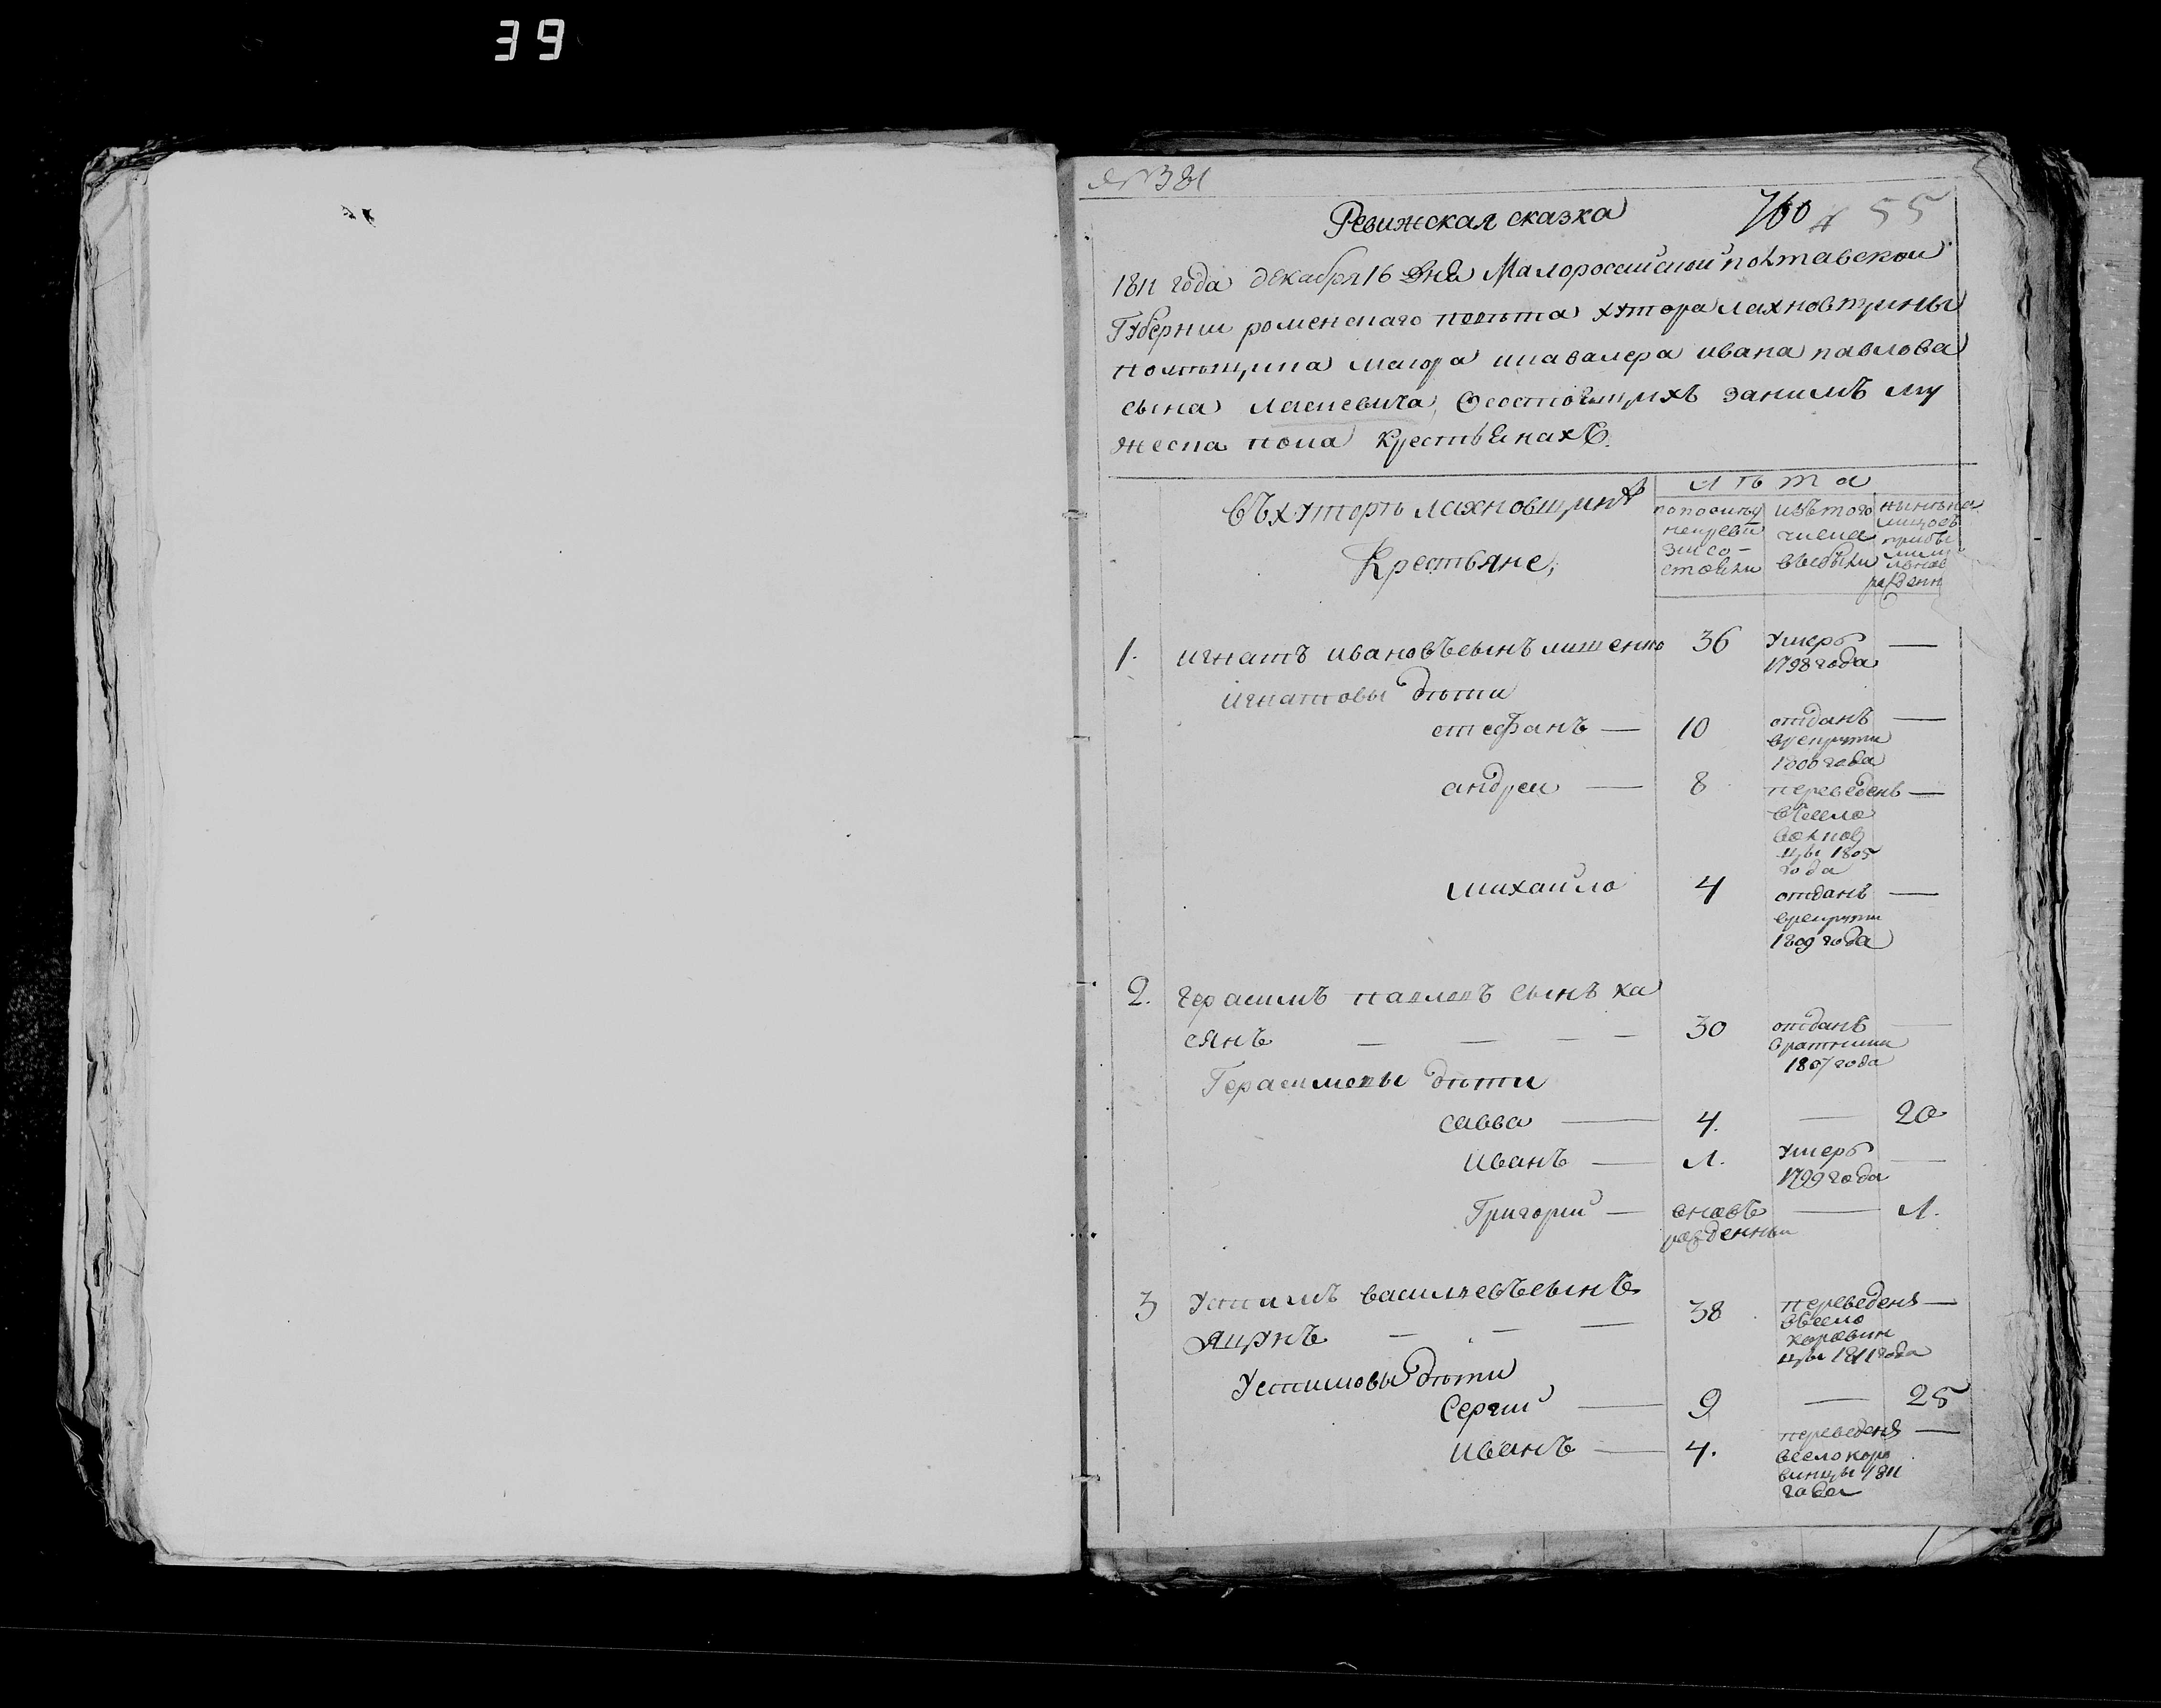 39
№ 381
Ревижская сказка 760 55
1811 года декабря 16 дня Малоросийской полтавской
Губернии роменскаго повѣта хутора лахновщины
помѣщика маиора икавалера ивана павлова
сына Ососто​ящихъ занимъ му
жеска пола крестьянахъ.
Въхуторѣ лахновщинѣ
Крестьяне,
лѣта
попослѣд
неиреви
зиисо-
стояли
изътого
числа
выбыли
нынѣна
лицосъ
прибы
лыми
рожден
1. игнатъ ивановъсынъ 36 Умеръ —
1798 года
игнатовы дѣти
стефанъ — 10 отданъ —
врекруты
1800 года
андреи — 8 переведенъ —
всело
цы 1805
года
михаило 4 отданъ —
врекруты
1809 года
2. герасимъ павловъ сынъ ка
сянъ — — — — 30 отданъ —
вратники
1807 года
Герасимовы дѣти
савва — 4. — 20
иванъ — л. Умеръ —
1799 года
Григорий — вновь — л.
рожденный
3 Устимъ васильевъсынъ 38 переведенъ —
яцунъ — — — всело
коровин
цы 1811 года
Устимовы дѣти
Сергий — 9 — 25
иванъ — 4. переведенъ —
всело коро
винцы 1811
года